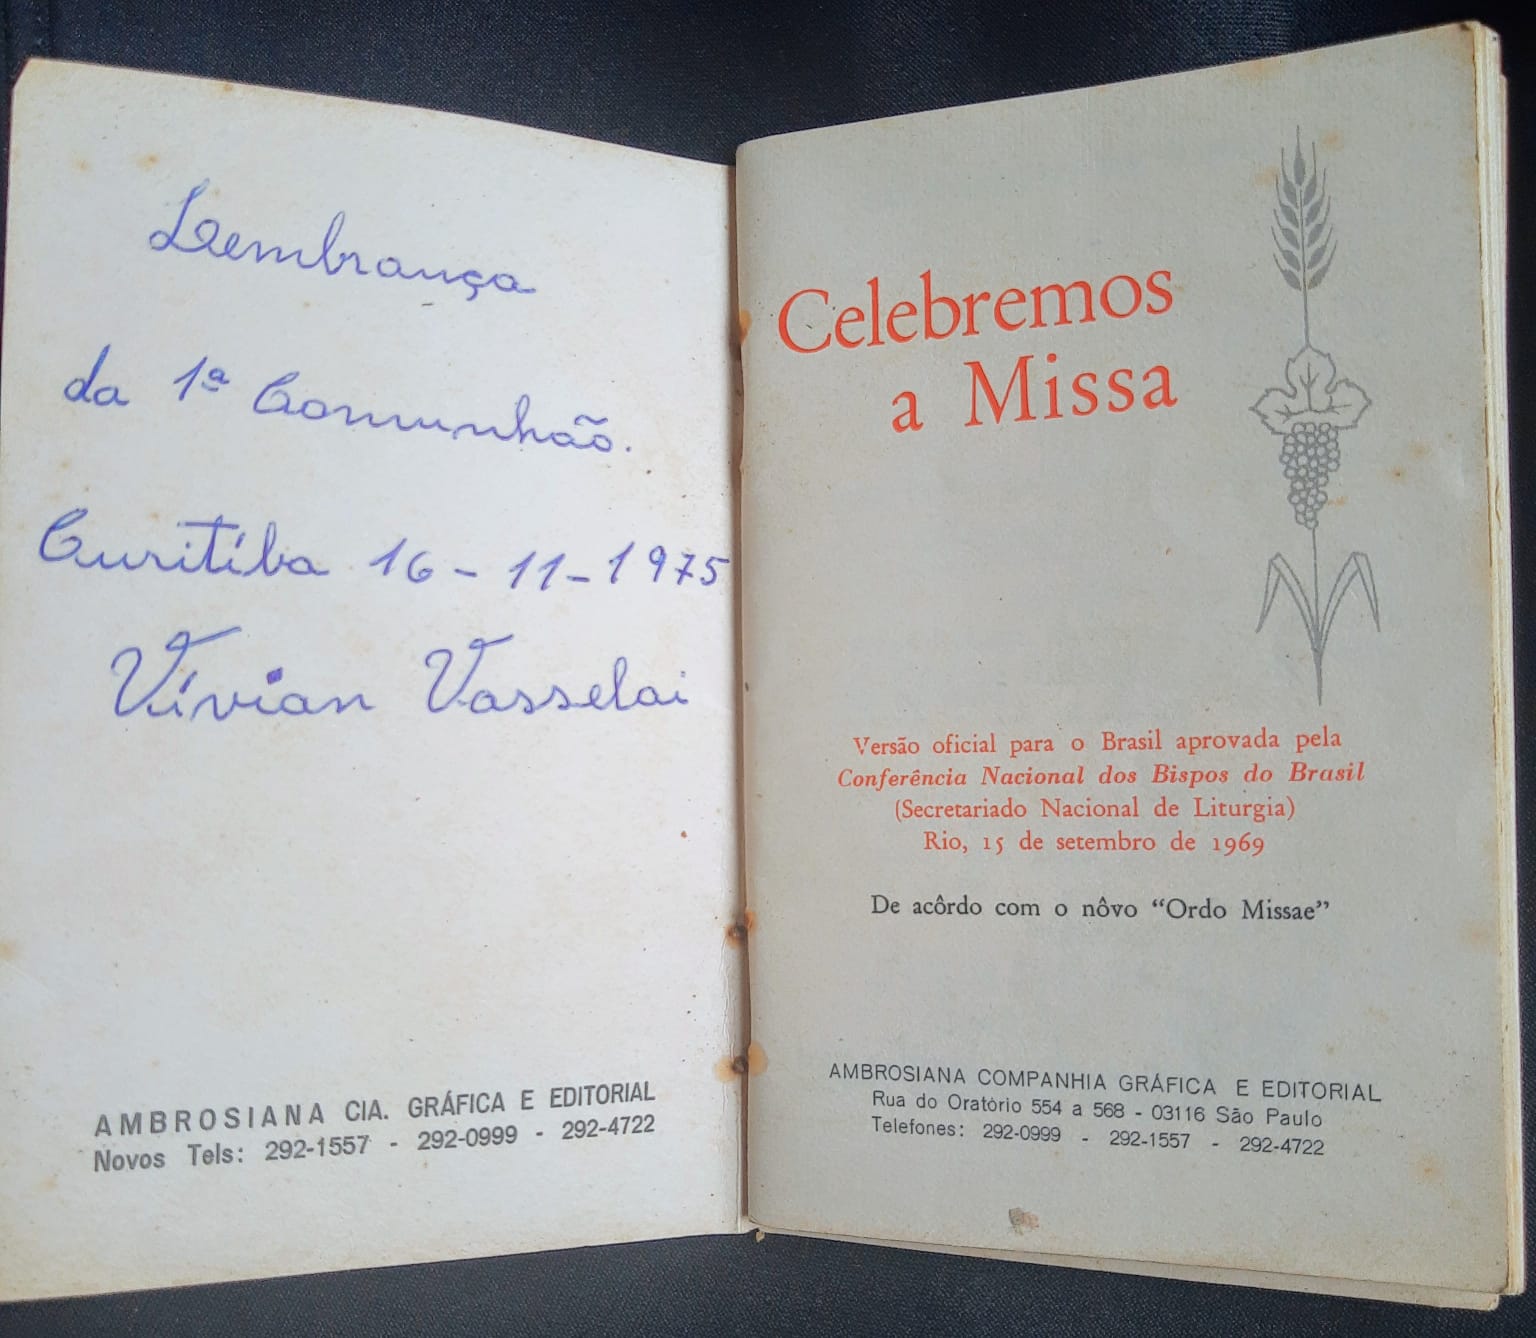 Lembrança
da 1ª Comunhão.
Curitiba 16-11-1975
Vívian Vasselai
AMBROSIANA CIA. GRÁFICA E EDITORIAL
Novos Tels: 292-1557 - 292-0999 - 292-4722
Celebremos
a Missa
Versão oficial para o Brasil aprovada pela
Conferência Nacional dos Bispos do Brasil
(Secretariado Nacional de Liturgia)
Rio, 15 de setembro de 1969
De acôrdo com o nôvo “Ordo Missae”
AMBROSIANA COMPANHIA GRÁFICA E EDITORIAL
Rua do Oratório 554 a 568 - 03116 São Paulo
Telefones: 292-0999 - 292-1557 - 292-4722